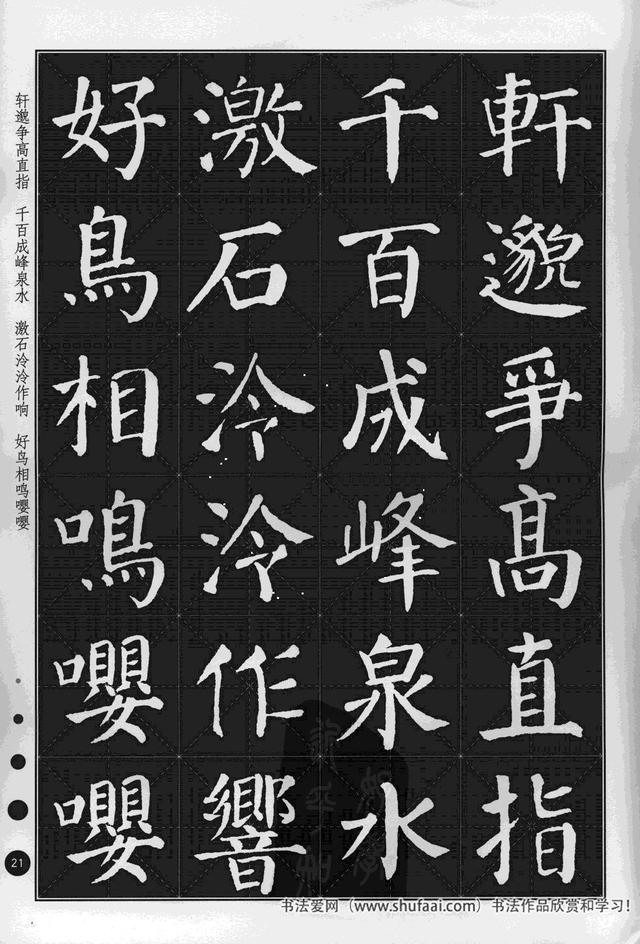 軒邈爭高直指
千百成峰泉水
激石泠泠作響
好鳥相鳴嚶嚶
轩邈争高直指 千百成峰泉水 激石泠泠作响 好鸟相鸣嘤嘤
21
书法爱网（www.shufaai.com）书法作品欣赏和学习!